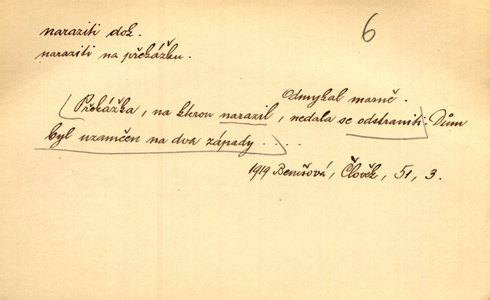 naraziti dok.
6
naraziti na překážku.
Odmykal marně.
(Překážka, na kterou narazil, nedala se odstranit.) Dům
byl uzamčen na dva západy ....
1919 Benešová, Člověk, 51, 3.